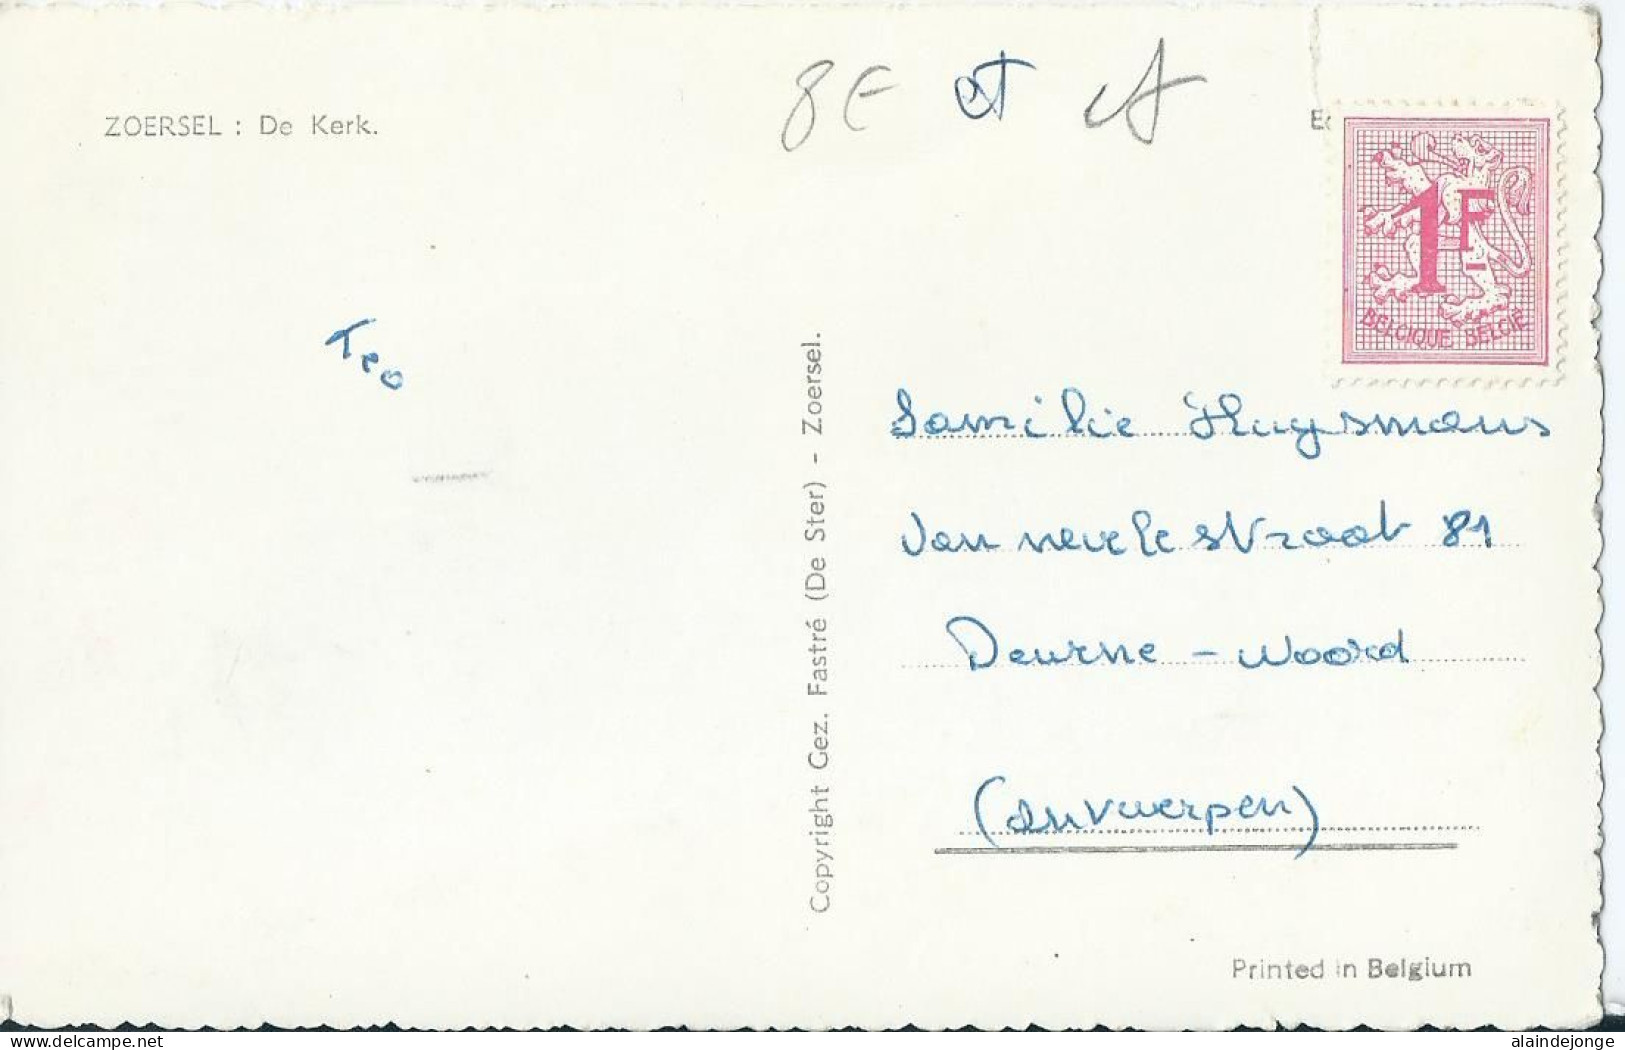 ZOERSEL : De Kerk.
8E
1F
BELGIQUE BELGIË
Teo
Copyright Gez. Fastré (De Ster) - Zoersel.
Familie Huysmans
Van nevele straat 81
Deurne - Noord
(Antwerpen)
Printed in Belgium
www.delcampe.net
alaindejonge